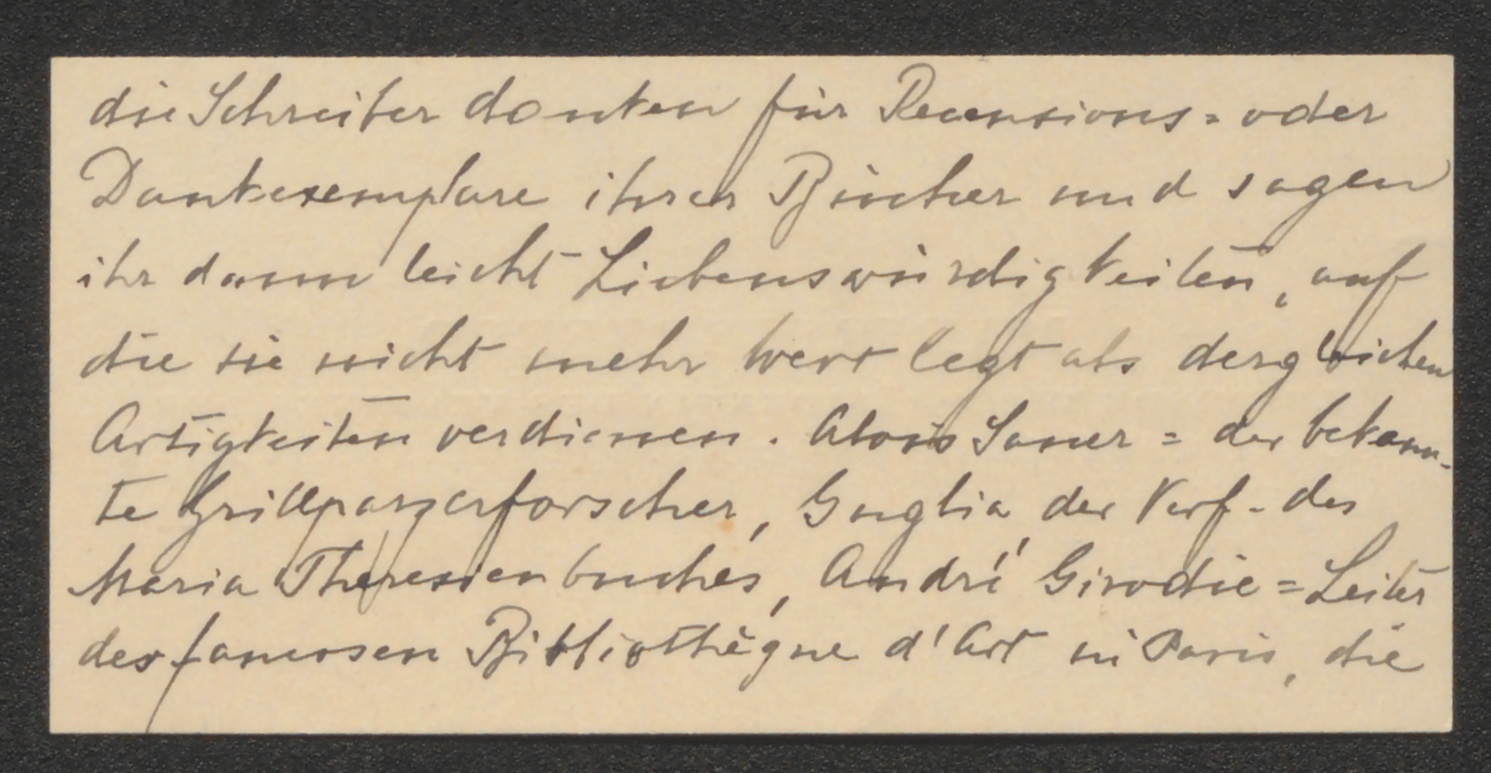 die Schreiber danken für Recensions= oder
Dankexemplare ihrer Bücher und sagen
ihr dann leicht Liebenswürdigkeiten, auf
die sie nicht mehr Wert legt als dergleichen
Artigkeiten verdienen. Alois Sauer = der bekann-
te Grillparzerforscher, Guglia der Verf. des
Maria Theresienbuches, André Girodie = Leiter
der famosen Bibliothèque d'Art in Paris, die